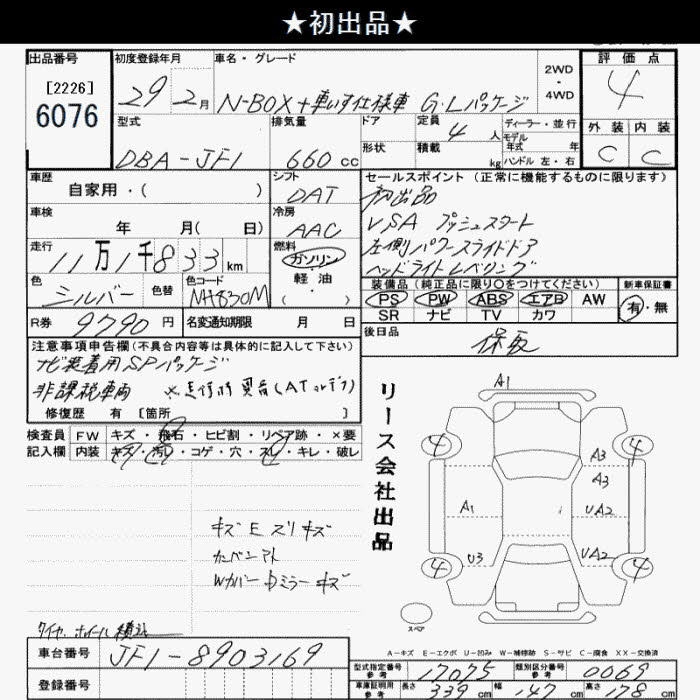 ★初出品★
出品番号
[2226]
6076
初度登録年月
29年 2月
車名・グレード
N-BOX+車いす仕様車 G・Lパッケージ
2WD・4WD
評価点
4
外装 内装
C C
型式
DBA-JF1
排気量
660cc
ドア
形状
定員
4人
積載
kg
ディーラー・並行
モデル年式 年
ハンドル 左・右
車歴
自家用・( )
シフト
DAT
冷房
AAC
車検
年 月( 日)
走行
11万1千833km
燃料
ガソリン
軽油
( )
色
シルバー
色替
色コード
NH830M
セールスポイント (正常に機能するものに限ります)
初出品
VSA プッシュスタート
左側パワースライドドア
ヘッドライトレベリング
装備品(純正品に限り○をつけてください)
PS PW ABS エアB AW
SR ナビ TV カワ
新車保証書
有・無
R券
9790円
名変通知期限 月 日
後日品
保取
注意事項申告欄(不具合内容等は具体的に記入して下さい)
ナビ装着用SPパッケージ
非課税車両 ※走行時異音(AT
修復歴 有 [箇所 ]
検査員記入欄
FW キズ・飛石・ヒビ割・リペア跡・×要
内装 キズ・汚レ・コゲ・穴・スレ・キレ・破レ
キズ E ズリキズ
カンバンアト
Wカバー Dミラーキズ
タイヤ、ホイール積込
リース会社出品
A1
4 4
A3
A3
A1
UA2
U3
UA2
4 4
スペア
A-キズ E-エクボ U-凹み W-補修跡 S-サビ C-腐食 XX-交換済
車台番号
JF1-8903169
登録番号
型式指定番号 参考
17075
類別区分番号 参考
0069
車庫証明用 参考
長さ 339cm
幅 147cm
高さ 178cm